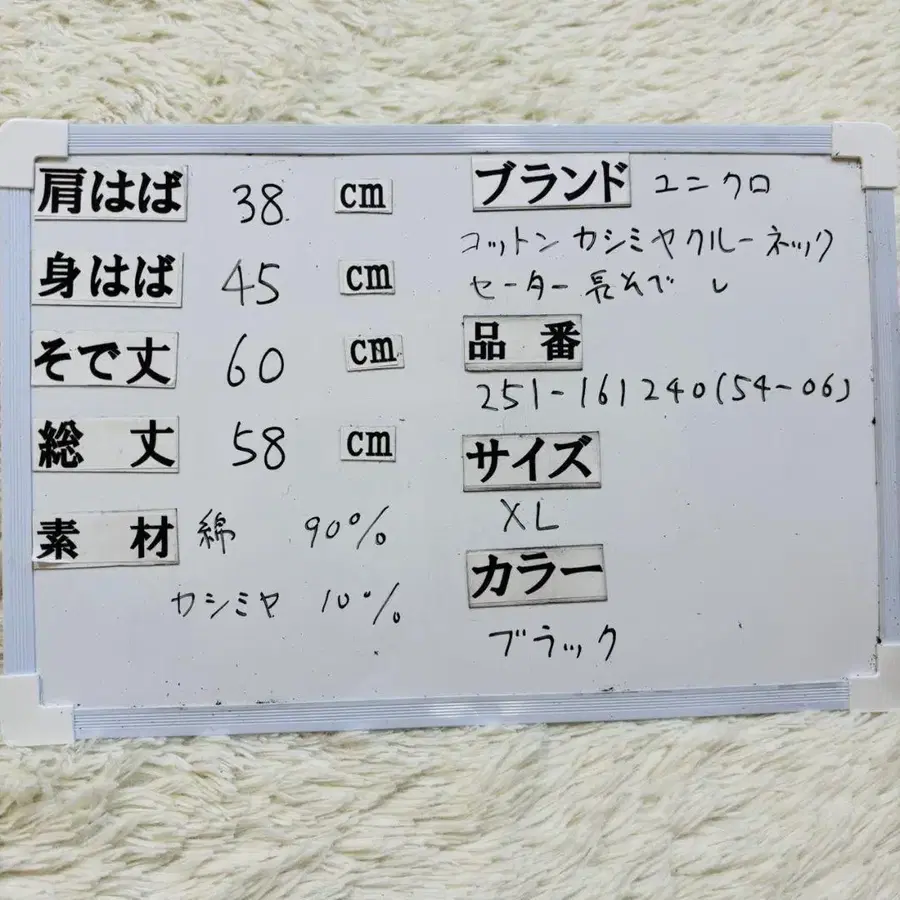 肩はば 38 cm
身はば 45 cm
そで丈 60 cm
総丈 58 cm
素材 綿 90%
カシミヤ 10%
ブランド ユニクロ
コットンカシミヤクルーネック
セーター長そで
品番
251-161240(54-06)
サイズ
XL
カラー
ブラック